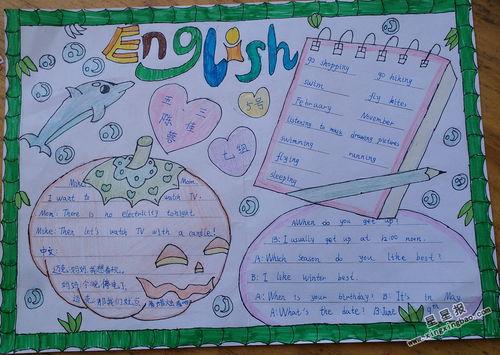 English
五 三
陈佳蓉
5号
七组
go shopping go hiking
swim fly kites
February November
listening to music drawing pictures
swimming running
flying
sleeping
Mike: Mom.
I want to watch TV.
Mom: There is no electricity tonight.
Mike: Then let's watch TV with a candle!
中文:
妈妈:今晚停电了。
When do you get up?
B: I usually get up at 12:00 noon.
A: Which season do you like best?
B: I like winter best.
A: When is your birthday? B: It's in May
A: What's the date? B: June 9th
星星报
www.xingxingbao.com